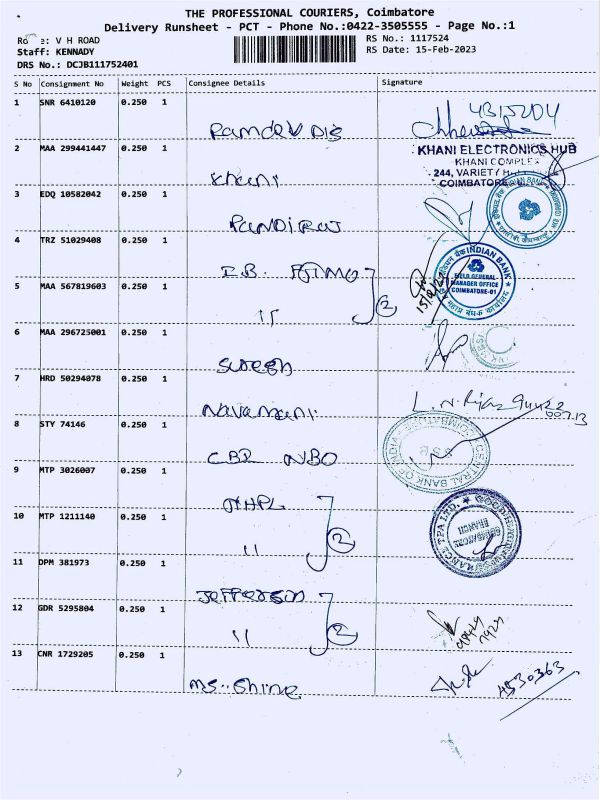 THE PROFESSIONAL COURIERS, Coimbatore
Delivery Runsheet - PCT - Phone No.:0422-3505555 - Page No.:1
V H ROAD
RS No.: 1117524
Staff: KENNADY
RS Date: 15-Feb-2023
DRS No.: DCJB111752401
S No Consignment No Weight PCS Consignee Details Signature
1 SNR 6410120 0.250 1
4315204
Ramdev Dis
2 MAA 299441447 0.250 1
KHANI ELECTRONICS HUB
KHANI COMPLEX
244, VARIETY
COIMBATORE
Khani
3 EDQ 10582042 0.250 1
INDIAN BANK
Pandiraj
4 TRZ 51029408 0.250 1
I.B.
INDIAN BANK
FIELD GENERAL
MANAGER OFFICE
COIMBATORE-01
5 MAA 567819603 0.250 1
11 2
6 MAA 296725001 0.250 1
Suresh
7 HRD 50294078 0.250 1
Navamani
8 STY 74146 0.250 1
CENTRAL BANK OF INDIA
CBI
9 MTP 3026007 0.250 1
NHPL
10 MTP 1211140 0.250 1
TPA LTD.
COIMBATORE
BRANCH
11 2
11 DPM 381973 0.250 1
Jefferson
12 GDR 5295804 0.250 1
11 2
13 CNR 1729205 0.250 1
4530363
MS. Shine